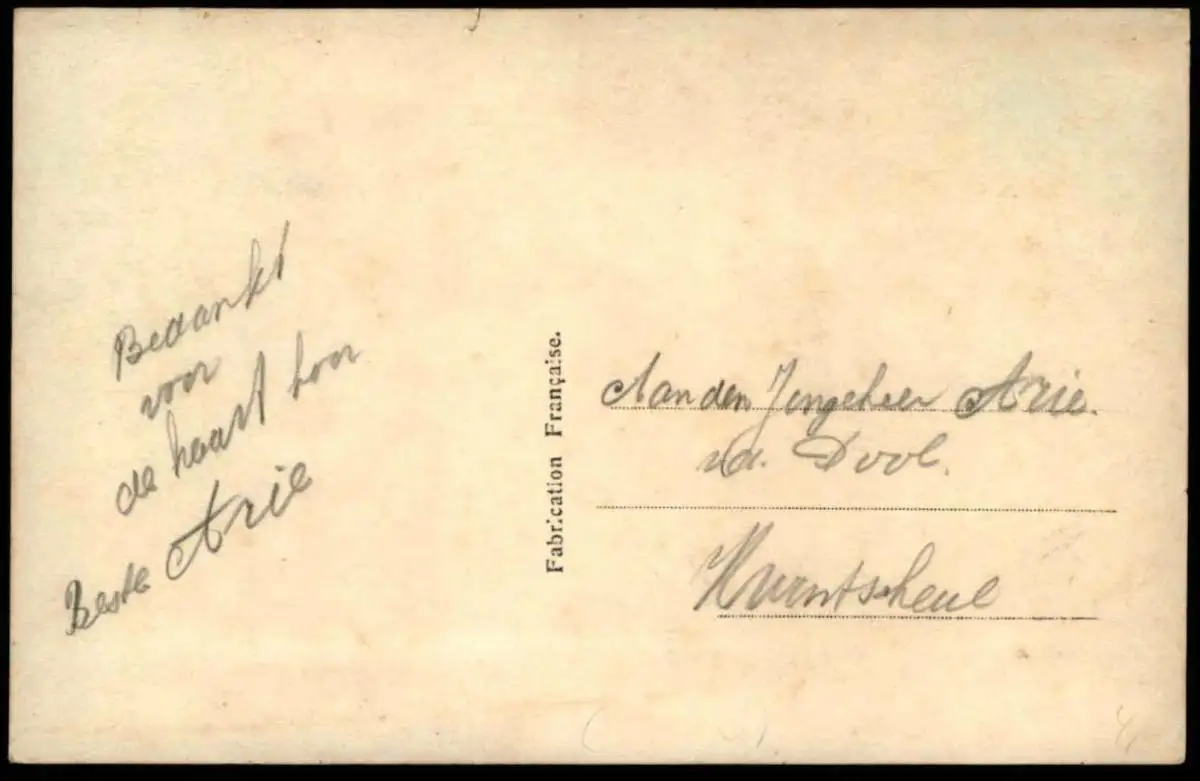 Bedankt
voor
de kaart hoor
Beste Arie
Fabrication Française.
Aan den Jongeheer Arie.
v.d. Dool.